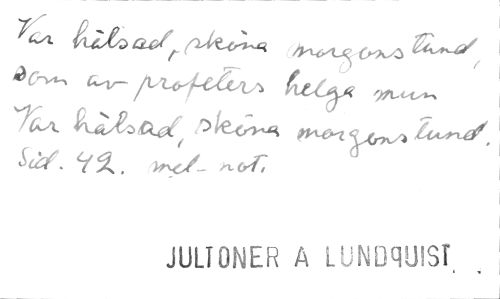 Var hälsad, sköna morgonstund,
som av profeters helga mun
Var hälsad, sköna morgonstund.
Sid. 42. mel- not.
JULTONER A LUNDQUIST.